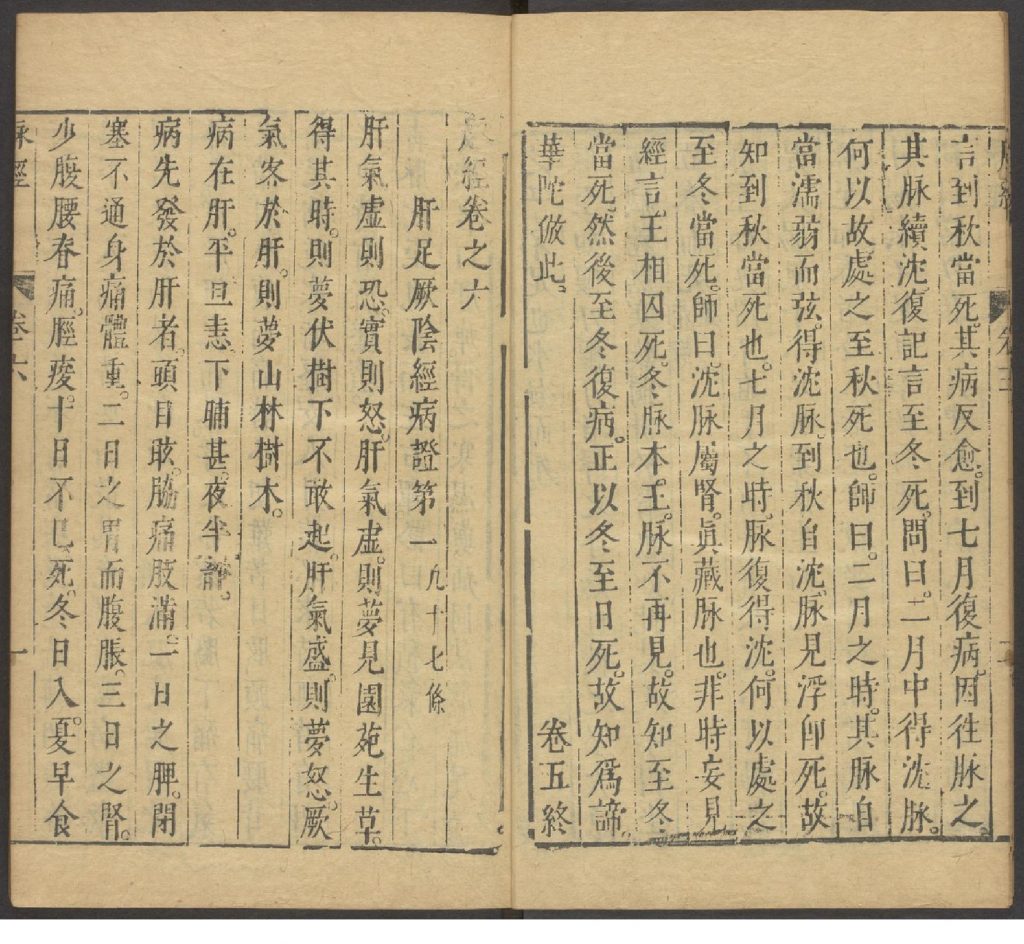 言到秋當死。其病反愈。到七月復病。因往脉之。
其脉續沈。復記言至冬死。問曰。二月中得沈脉。
何以故處之至秋死也。師曰。二月之時。其脉自
當濡弱而弦。得沈脉。到秋自沈。脉見浮卽死。故
知到秋當死也。七月之時。脉復得沈。何以處之
至冬當死。師曰。沈脉屬腎。眞藏脉也。非時妄見
經言。王相囚死。冬脉本王。脉不再見。故知至冬
當死。然後至冬復病。正以冬至日死。故知爲諦。
華陀倣此。 卷五終
脉經卷之六
肝足厥陰經病證第一 九十七條
肝氣虛則恐。實則怒。肝氣虛。則夢見園苑生草。
得其時。則夢伏樹下不敢起。肝氣盛。則夢怒。厥
氣客於肝。則夢山林樹木。
病在肝。平旦恚。下晡甚。夜半靜。
病先發於肝者。頭目眩。脇痛肢滿。一日之脾。閉
塞不通。身痛體重。二日之胃。而腹脹。三日之腎。
少腹腰脊痛。脛痠。十日不已死。冬日入。夏早食
脉經 卷六 一